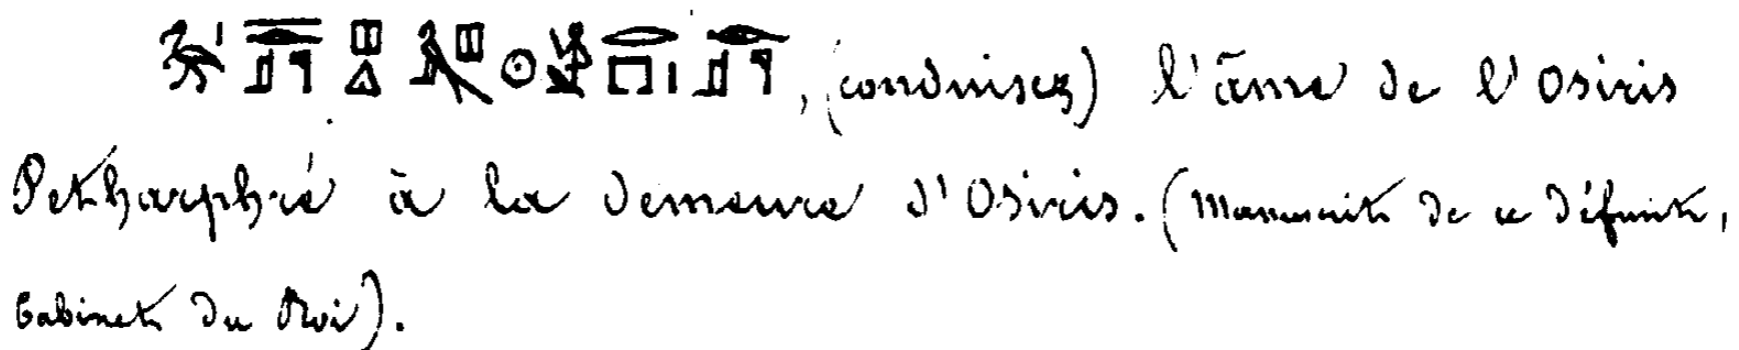 , (conduisez) l'âme de l'Osiris
Petkharphré à la demeure d'Osiris. (Manuscrit de ce défunt,
Cabinet du Roi).